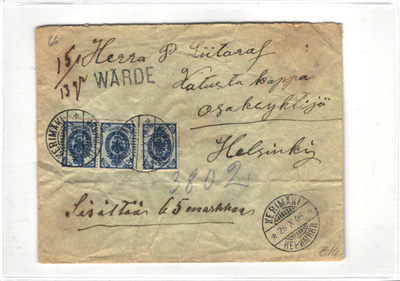 66
15/
13 gr
Herra P
WÄRDE
Katusta kappa
osakeyhtijö
Helsinki
KERIMÄKI
3802
Sisältää 65 markkaa
KERIMÄKI
26 X 06
КЕРИМЯКИ